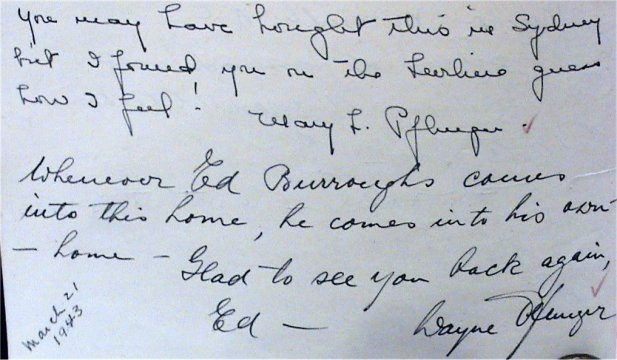 You may have bought this in Sydney
but I found you on the Lurline guess
how I feel!
Mary L. Pflueger.
Whenever Ed Burroughs comes
into this home, he comes into his own
— home — Glad to see you back again,
Ed —
Wayne Pflueger
March 21
1943